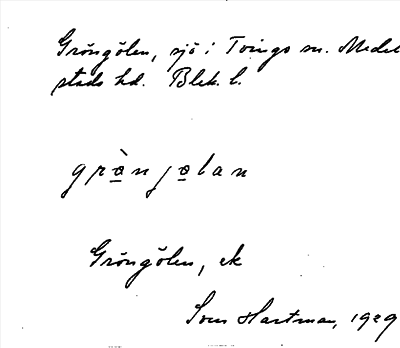 Gröngölen, sjö i Tvings sn. Medel
stads hd. Blek. l.
grò̱njo̱lan
Gröngölen, ek
Sven Hartman, 1929